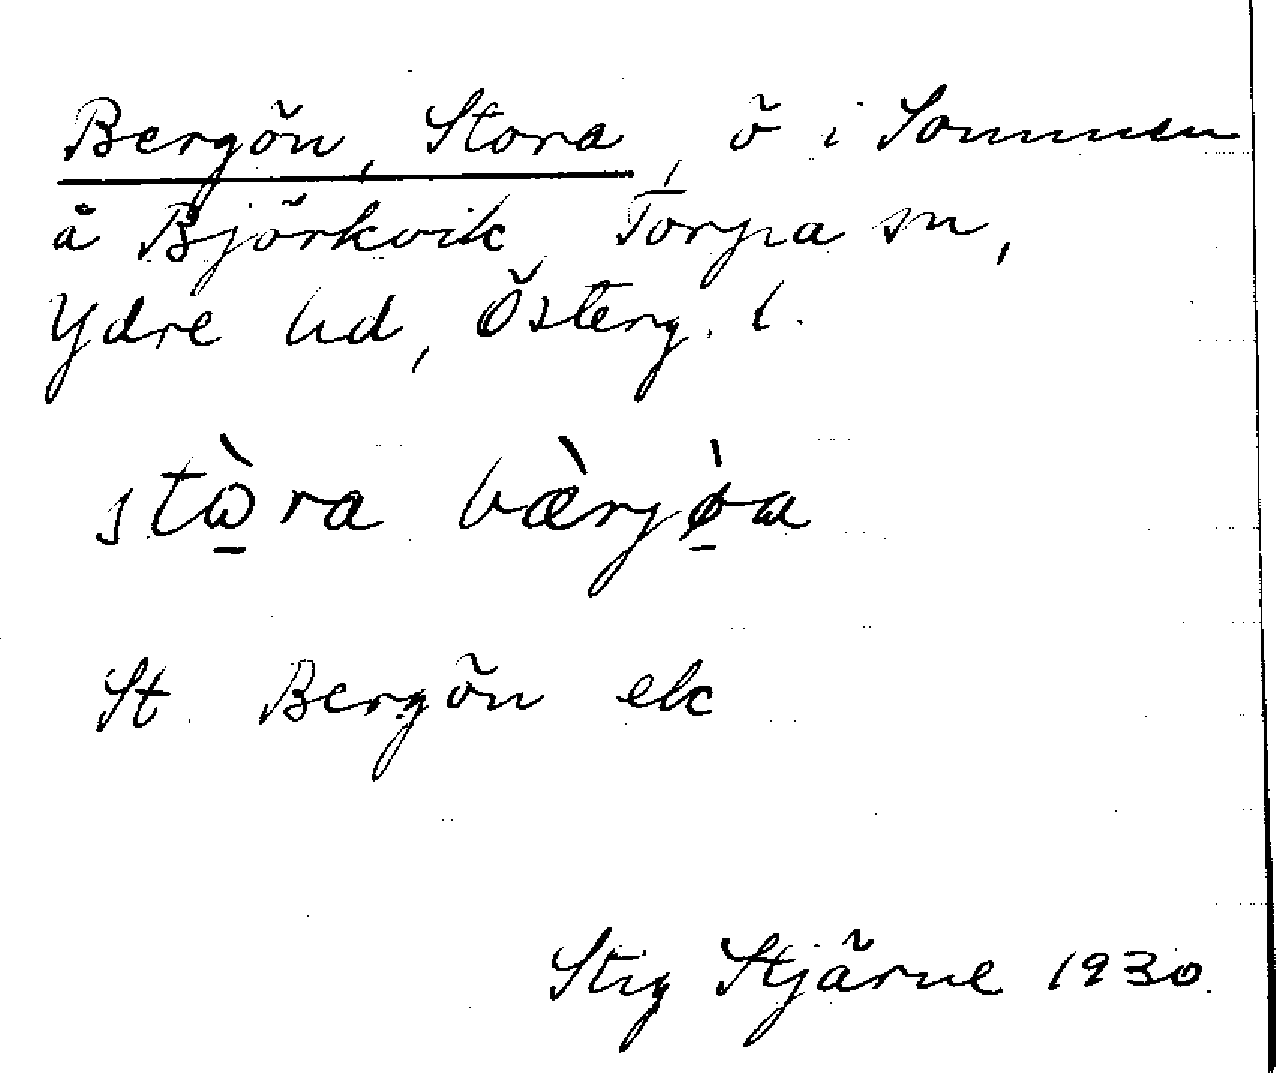 Bergön, Stora, ö i Sommen
å Björkvik Torpa sn,
Ydre hd, Österg. l.
stὼ̲ra bærjø̲̀a
St. Bergön ek
Stig Stjärne 1930.